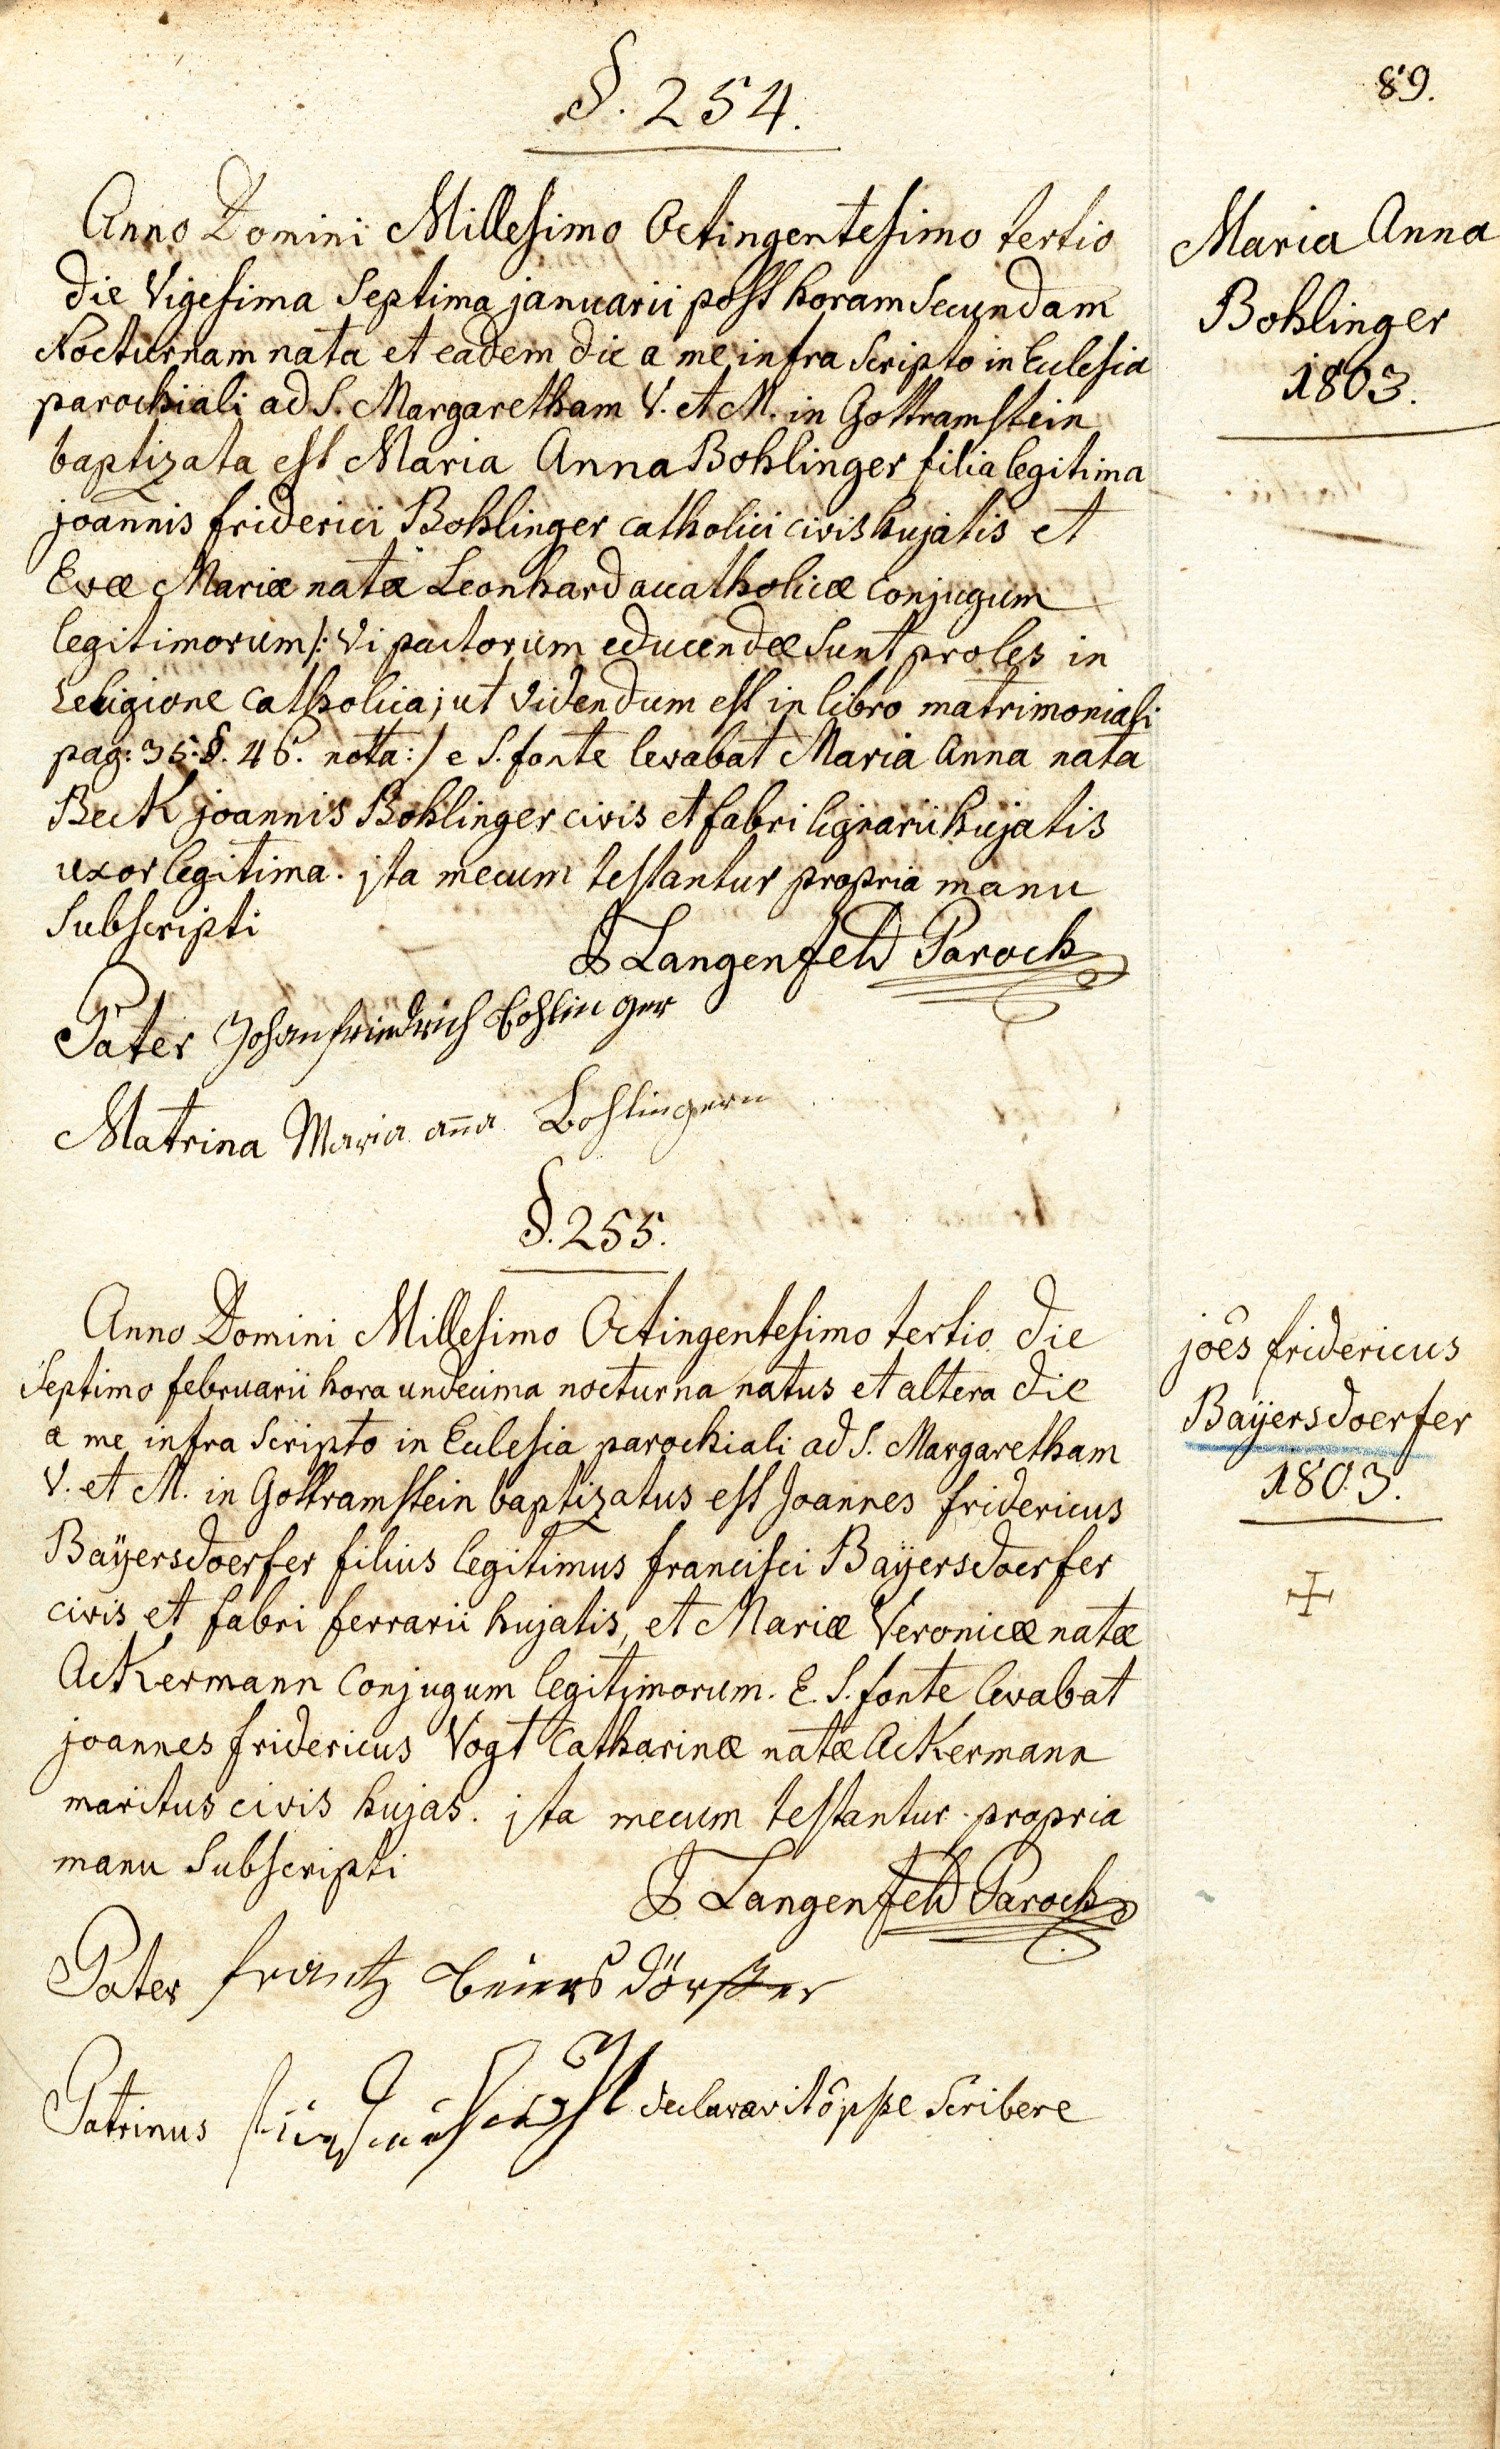 89.
§. 254.
Maria Anna
Bohlinger
1803.
Anno Domini Millesimo Octingentesimo tertio
die Vigesima Septima januarii post horam Secundam
Nocturnam nata et eadem die a me infra Scripto in Eclesia
parochiali ad S. Margaretham V. et M. in Gottramstein
baptizata est Maria Anna Bohlinger filia legitima
joannis friderici Bohlinger catholici civis hujatis et
Evæ Mariæ natæ Leonhard acatholicæ conjugum
legitimorum /: Vi pactorum educendæ Sunt proles in
religione catholica; ut videndum est in libro matrimoniali
pag: 35: §. 46. notta :/ e S. fonte levabat Maria Anna nata
Beck joannis Bohlinger civis et fabri lignarii hujatis
uxor legitima. jta mecum testantur propria manu
Subscripti
J Langenfeld Paroch
Pater Johan friedrich Bohlinger
Matrina Maria aña Bohlingern
§. 255.
joês fridericus
Baÿersdoerfer
1803.
Anno Domini Millesimo Octingentesimo tertio die
Septimo februarii hora undecima nocturna natus et altera die
a me infra Scripto in Eclesia parochiali ad S. Margaretham
V. et M. in Gottramstein baptizatus est Joannes fridericus
Baÿersdoerfer filius legitimus francisci Baÿersdoerfer
civis et fabri ferrarii hujatis, et Mariæ Veronicæ natæ
Ackermann Conjugum legitimorum. E. S. fonte levabat
joannes fridericus Vogt Catharinæ natæ Ackermann
maritus civis hujas. jta mecum testantur propria
manu Subscripti
J Langenfeld Paroch
Pater frantz
Patrinus declaravit Scribere